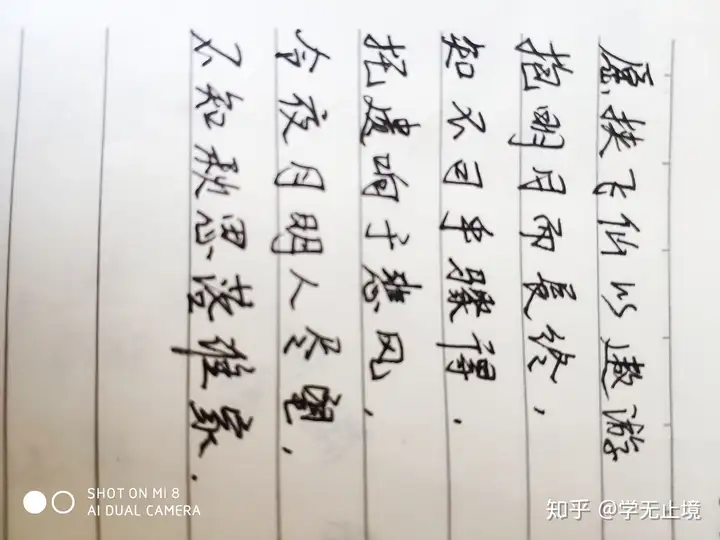 愿挟飞仙以遨游
抱明月而长终，
知不可乎骤得.
托遗响于悲风，
今夜月明人尽望，
不知秋思落谁家.
SHOT ON MI 8
AI DUAL CAMERA
知乎 @学无止境